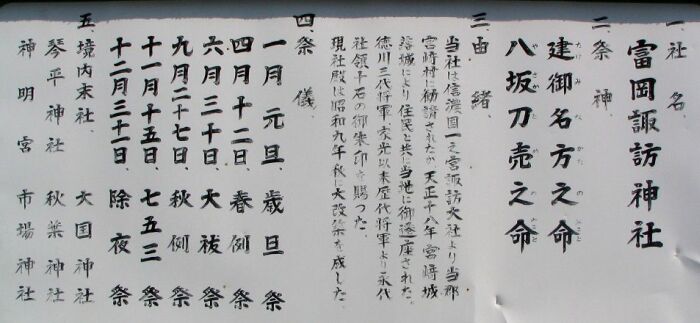 一、社名
富岡諏訪神社
二、祭神
建御名方之命
たけみなかたのみこと
八坂刀売之命
やさかとめのみこと
三由緒
当社は信濃国一之宮諏訪大社より当郡
宮崎村に勧請されたが天正十八年宮崎城
落城により住民と共に当地に御遷座された。
徳川三代将軍家光以来歴代将軍より永代
社領十石の御朱印を賜った。
現社殿は昭和九年秋に大改築を成した。
四、祭儀
一月元旦、歳旦祭
四月十二日、春例祭
六月三十日、大祓祭
九月二十七日、秋例祭
十一月十五日、七五三祭
十二月三十一日、除夜祭
五、境内末社、大国神社
琴平神社秋葉神社
神明宮市場神社